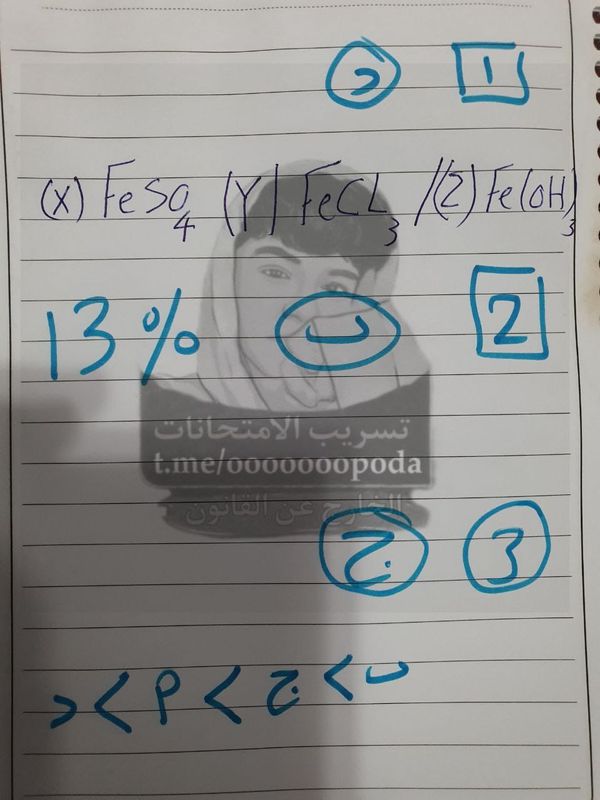 1 د
(X) FeSO4 (Y) FeCL3 /(Z) Fe(OH)3
2 ب 13%
تسريب الامتحانات
t.me/ooooooopoda
الخارج عن القانون
3 ج
ب > ج > م > د